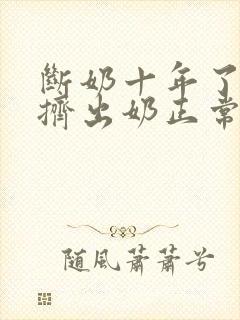 斷奶十年了
擠出奶正常
随風蕭蕭兮